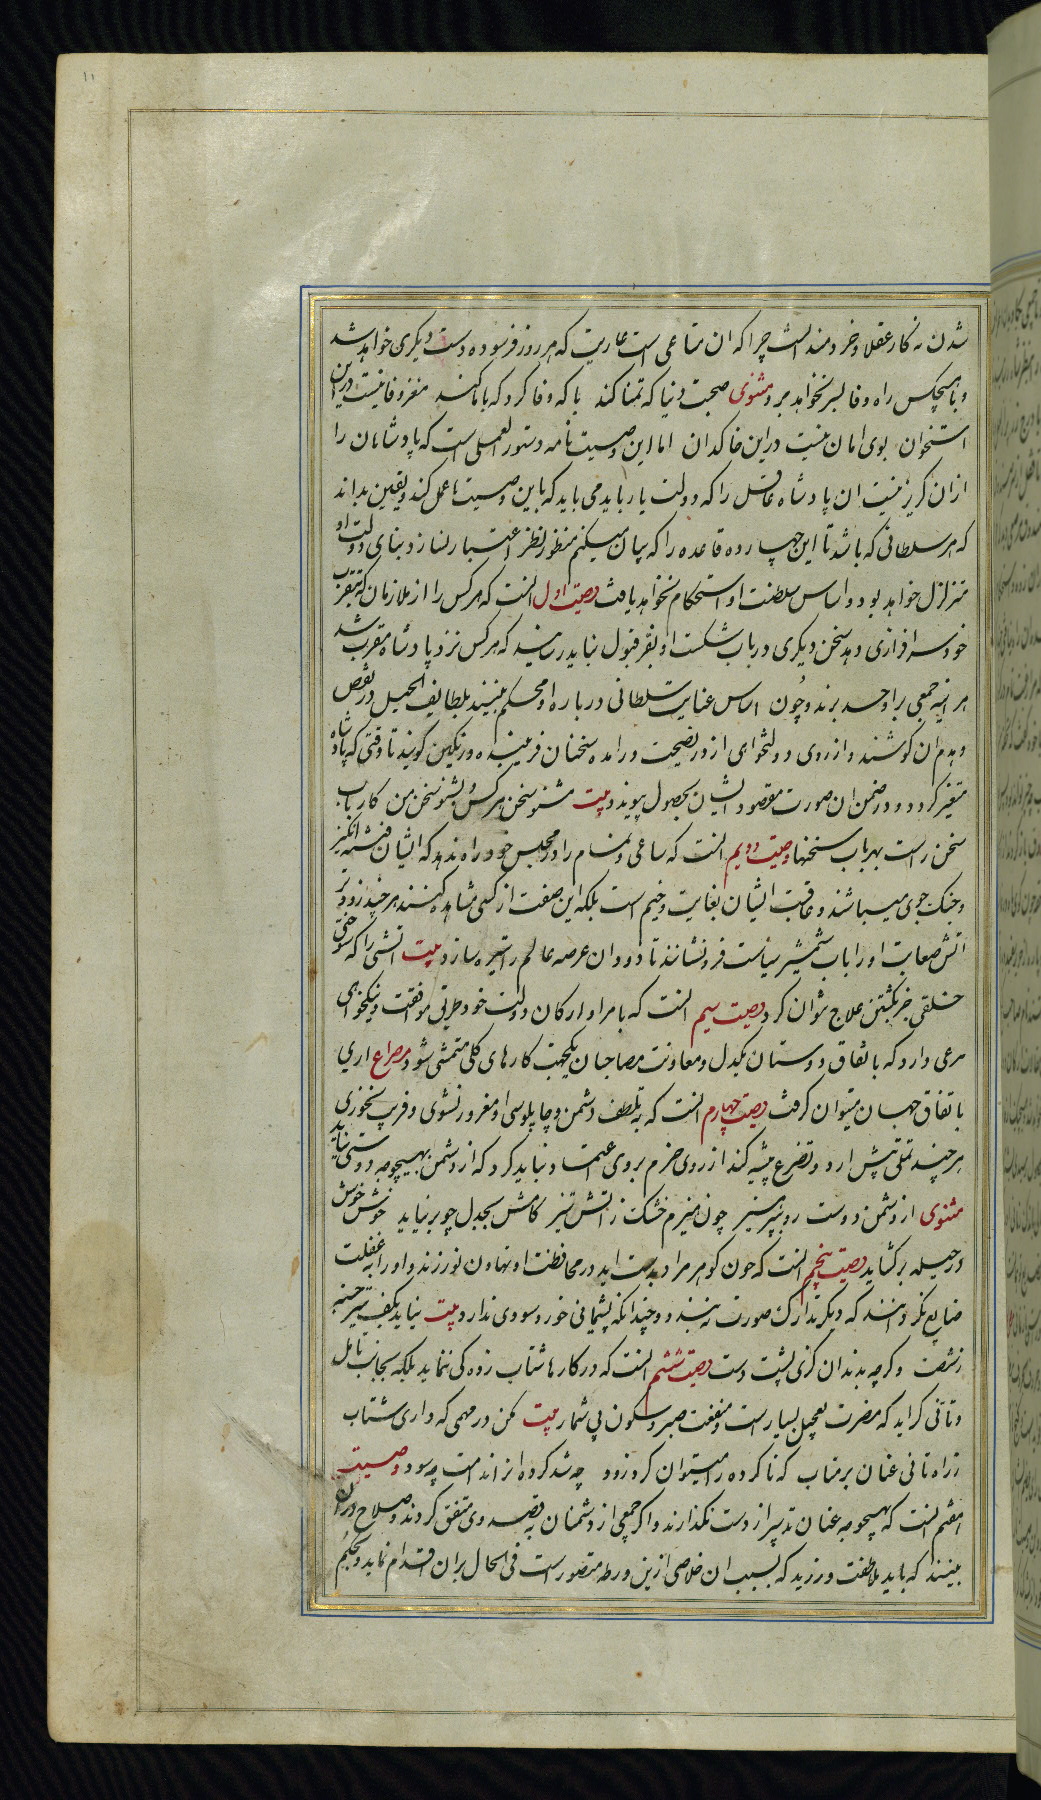 ۱۱
شدن نه کار عقلا و خردمندانست چرا که ان متاعی است عاریت که هر روز فرسوده دست دیکری خواهد شد
و با هیچکس راه وفا بسر نخواهد برد مثنوی صحبت دنیا که تمنا کند با که وفا کرد که با ما کند مغز وفا نیست درین
استخوان بوی امان نیست درین خاکدان اما این وصیت نامه دستور العملی است که پادشاهان را
ازان کریز نیست ان پادشاه عاقل را که دولت یار باید می باید که باین وصیتها عمل کند و یقین بداند
که هر سلطانی که باشد تا این چهارده قاعده را که بیان میکنم منظور نظر اعتبار نسازد بنای دولت او
متزلزل خواهد بود و اساس سلطنت او استحکام نخواهد یافت وصیت اول انست که هر کس را از ملازمان که بتقرب
خود سرافرازی دهد سخن دیکری در باب شکست او بقر قبول نباید رسانید که هر کس نزد پادشاه مقرب شد
هر اینه جمعی بر او حسد برند و چون اساس عنایت سلطانی درباره او محکم بینند بلطایف الحیل در نقص
و هدم ان کوشند و از روی دولتخواهی از در نصیحت درامده سخنان فریبنده و رنکین کویند تا وقتی که پادشاه
متغیر کردد و در ضمن ان صورت مقصود ایشان بحصول پیوندد بیت مشنو سخن هر کس و بشنو سخن من کارباب
سخن راست بهر باب سخنها وصیت دویم انست که ساعی و نمام را در مجلس خود راه ندهد که ایشان فتنه انکیز
و جنک جوی میباشند و عاقبت ایشان بغایت وخیم است بلکه این صفت از کسی مشاهده کنند هر چند زودتر
اتش سعایت او را باب شمشیر سیاست فرو نشانند تا دود ان عرصه عالم را تیره نسازد بیت اتشی را که سوختی
خلقی جز بکشتن علاج نتوان کرد وصیت سیم انست که با مرا و ارکان دولت خود طریق موافقت و نیکخواهی
مرعی دارد که باتفاق دوستان یکدل و معاونت مصاحبان یکجهت کارهای کلی متمشی شود مصراع اری
باتفاق جهان میتوان کرفت وصیت چهارم انست که به تلطف دشمن و چاپلوسی او مغرور نشوی و فریب نخوری
هر چند تملق پیش ارد و تضرع پیشه کند از روی حزم بر وی اعتماد نباید کرد که از دشمن بهیچوجه دوستی نیاید
مثنوی از دشمن دوست رو بپرهیز چون هیزم خشک ز اتش تیز کامش بجدل چو برنیاید خوش خوش
در حیله برکشاید وصیت پنجم انست که چون کوهر مراد بدست اید در محافظت او تهاون نورزند و او را بغفلت
ضایع نکردانند که دیکر تدارک صورت نبندد و چندانکه پشیمانی خورد سودی ندارد بیت نیاید بکف تیر جسته
ز شصت وکرچه بدندان کزی پشت دست وصیت ششم انست که در کارها شتاب زدکی ننماید بلکه بجانب تامل
و تانی کراید که مضرت تعجیل بسیار است و منفعت صبر و سکون بی شمار بیت مکن در مهمی که داری شتاب
ز راه تانی عنان بر متاب که ناکرده را میتوان کرد زود چه شد کرده انکه ندامت چه سود وصیت
هفتم انست که بهیچوجه عنان تدبیر از دست نکذارند و اکر جمعی از دشمنان بقصد وی متفق کردند و صلاح دران
بینند که باید ملاطفت ورزید که بسبب ان خلاصی ازین ورطه متصور است فی الحال بران اقدام نماید و بحکم